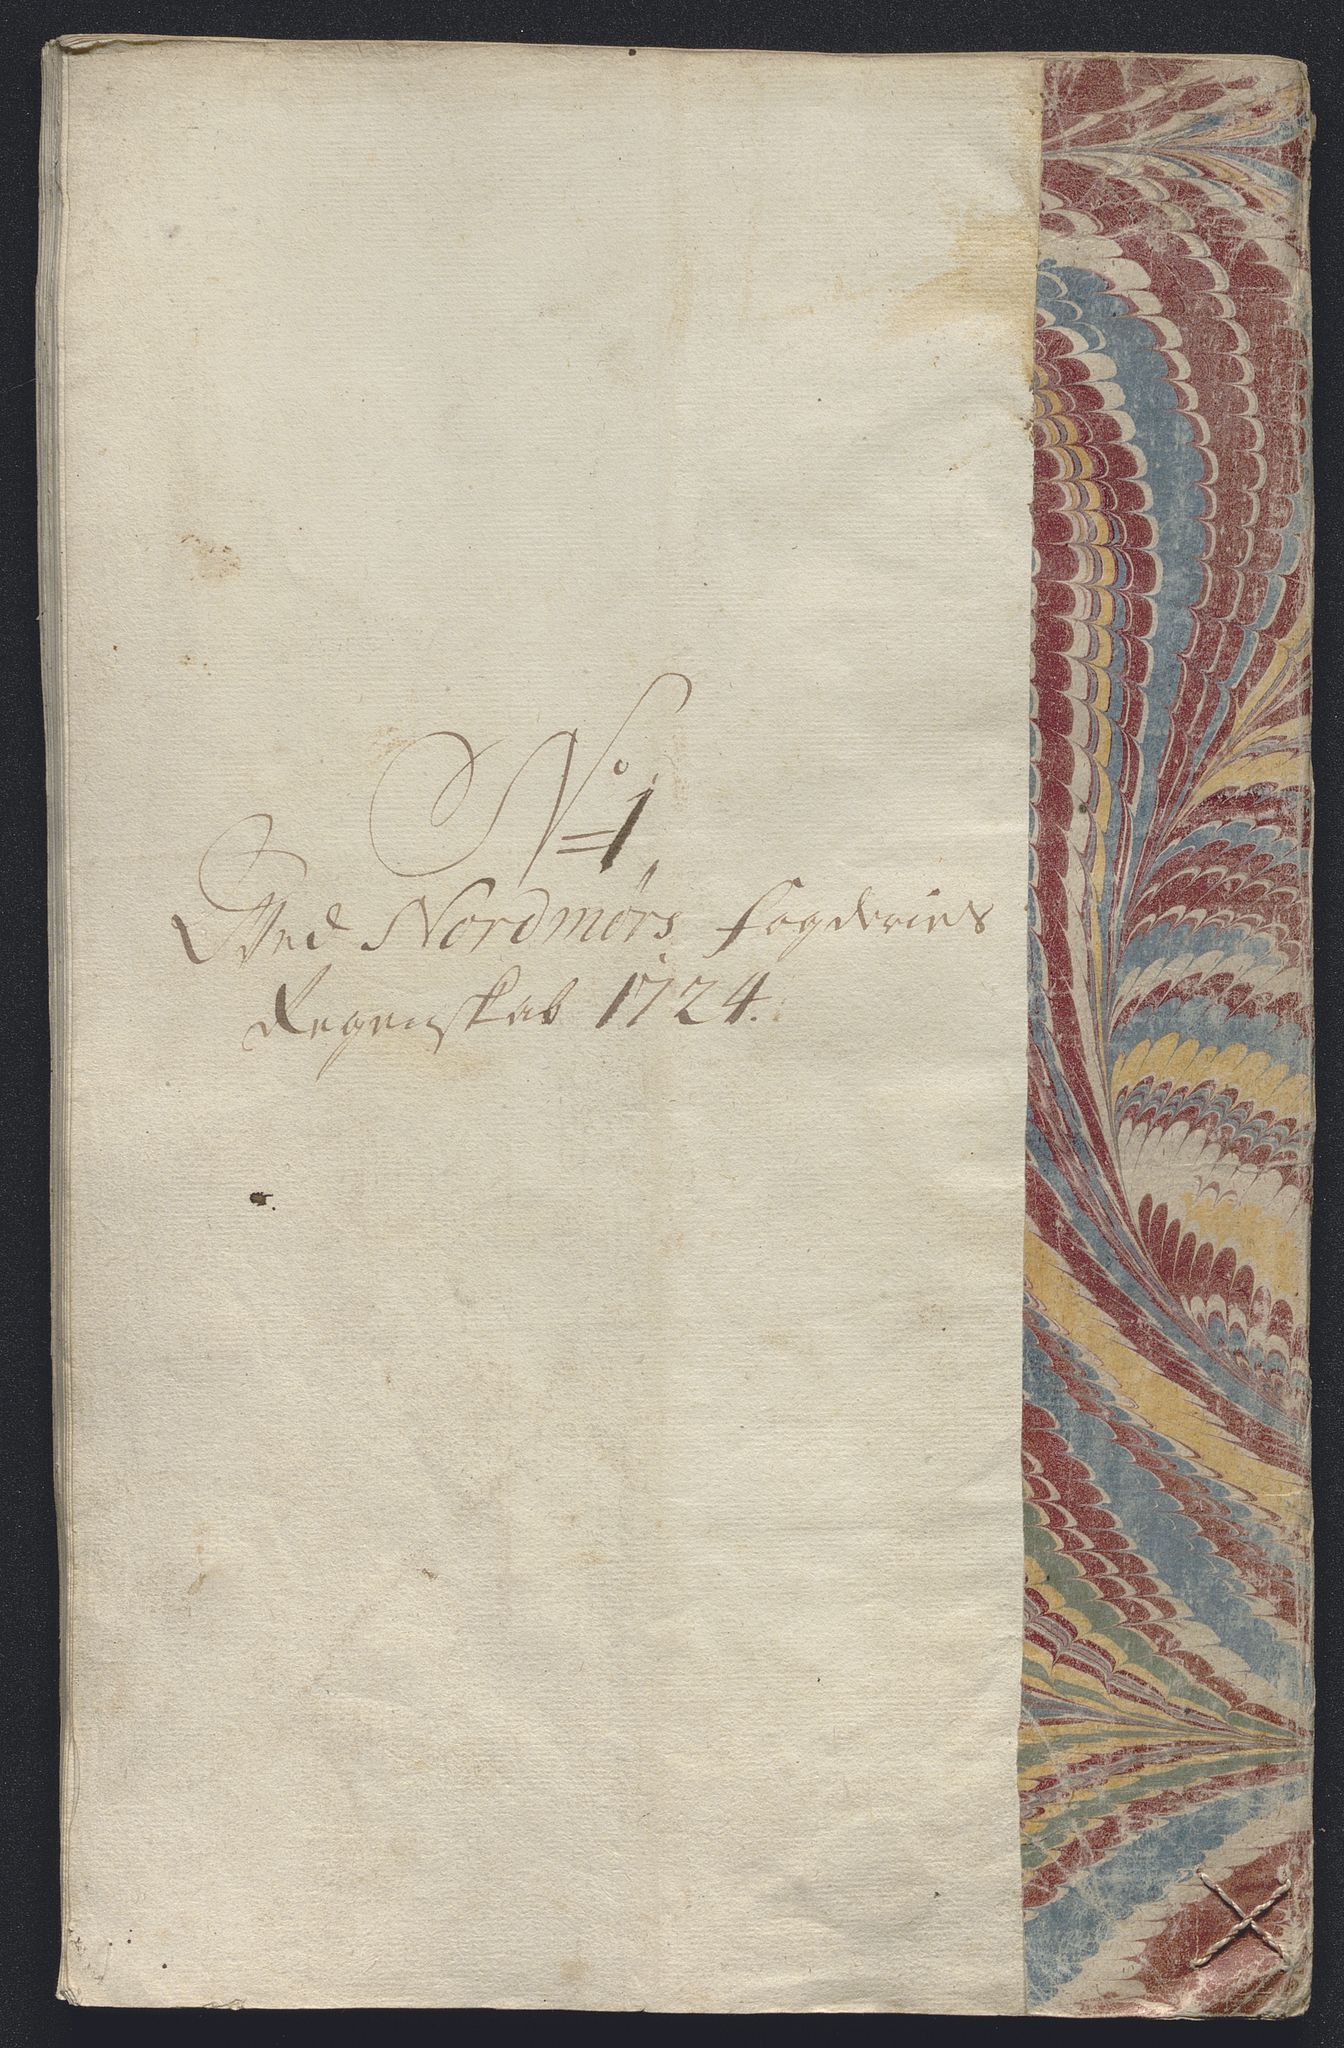 No 1
Ved Nordmørs fogderies
Regenskab 1724.